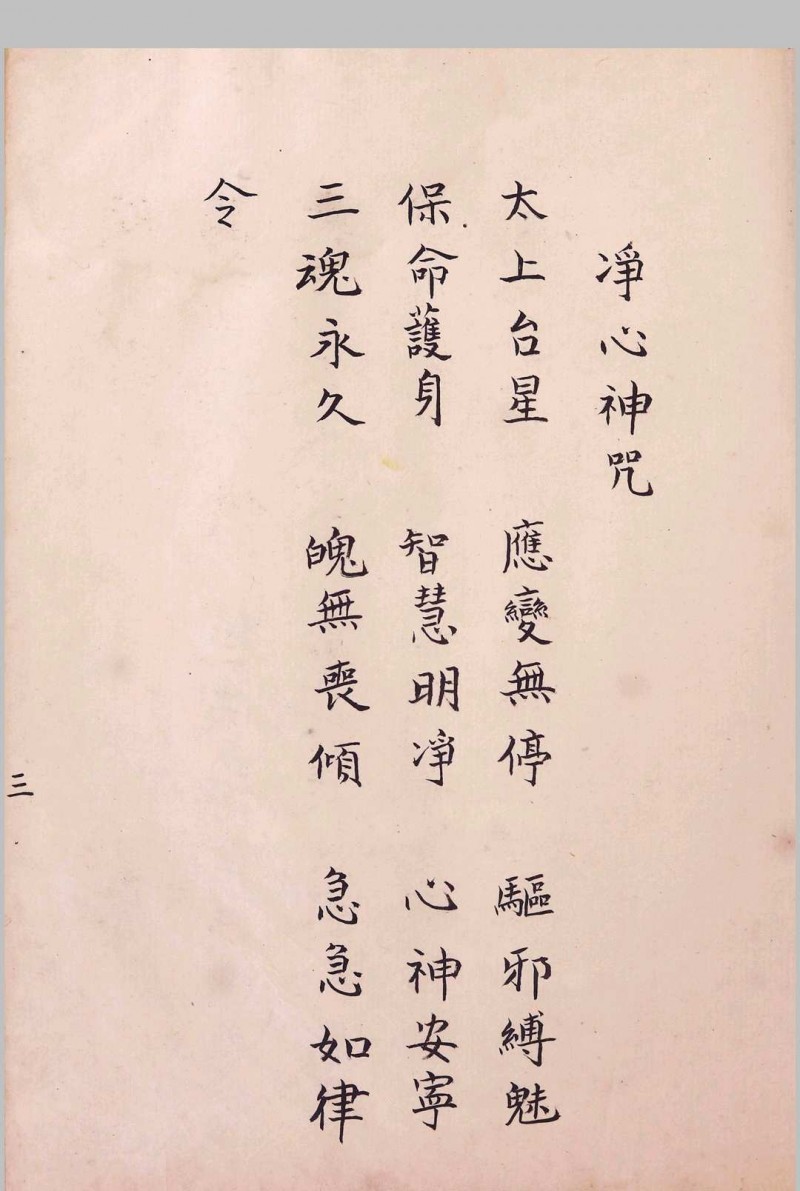 凈心神咒
太上台星 應變無停 驅邪縛魅
保命護身 智慧明凈 心神安寧
三魂永久 魄無喪傾 急急如律
令
三